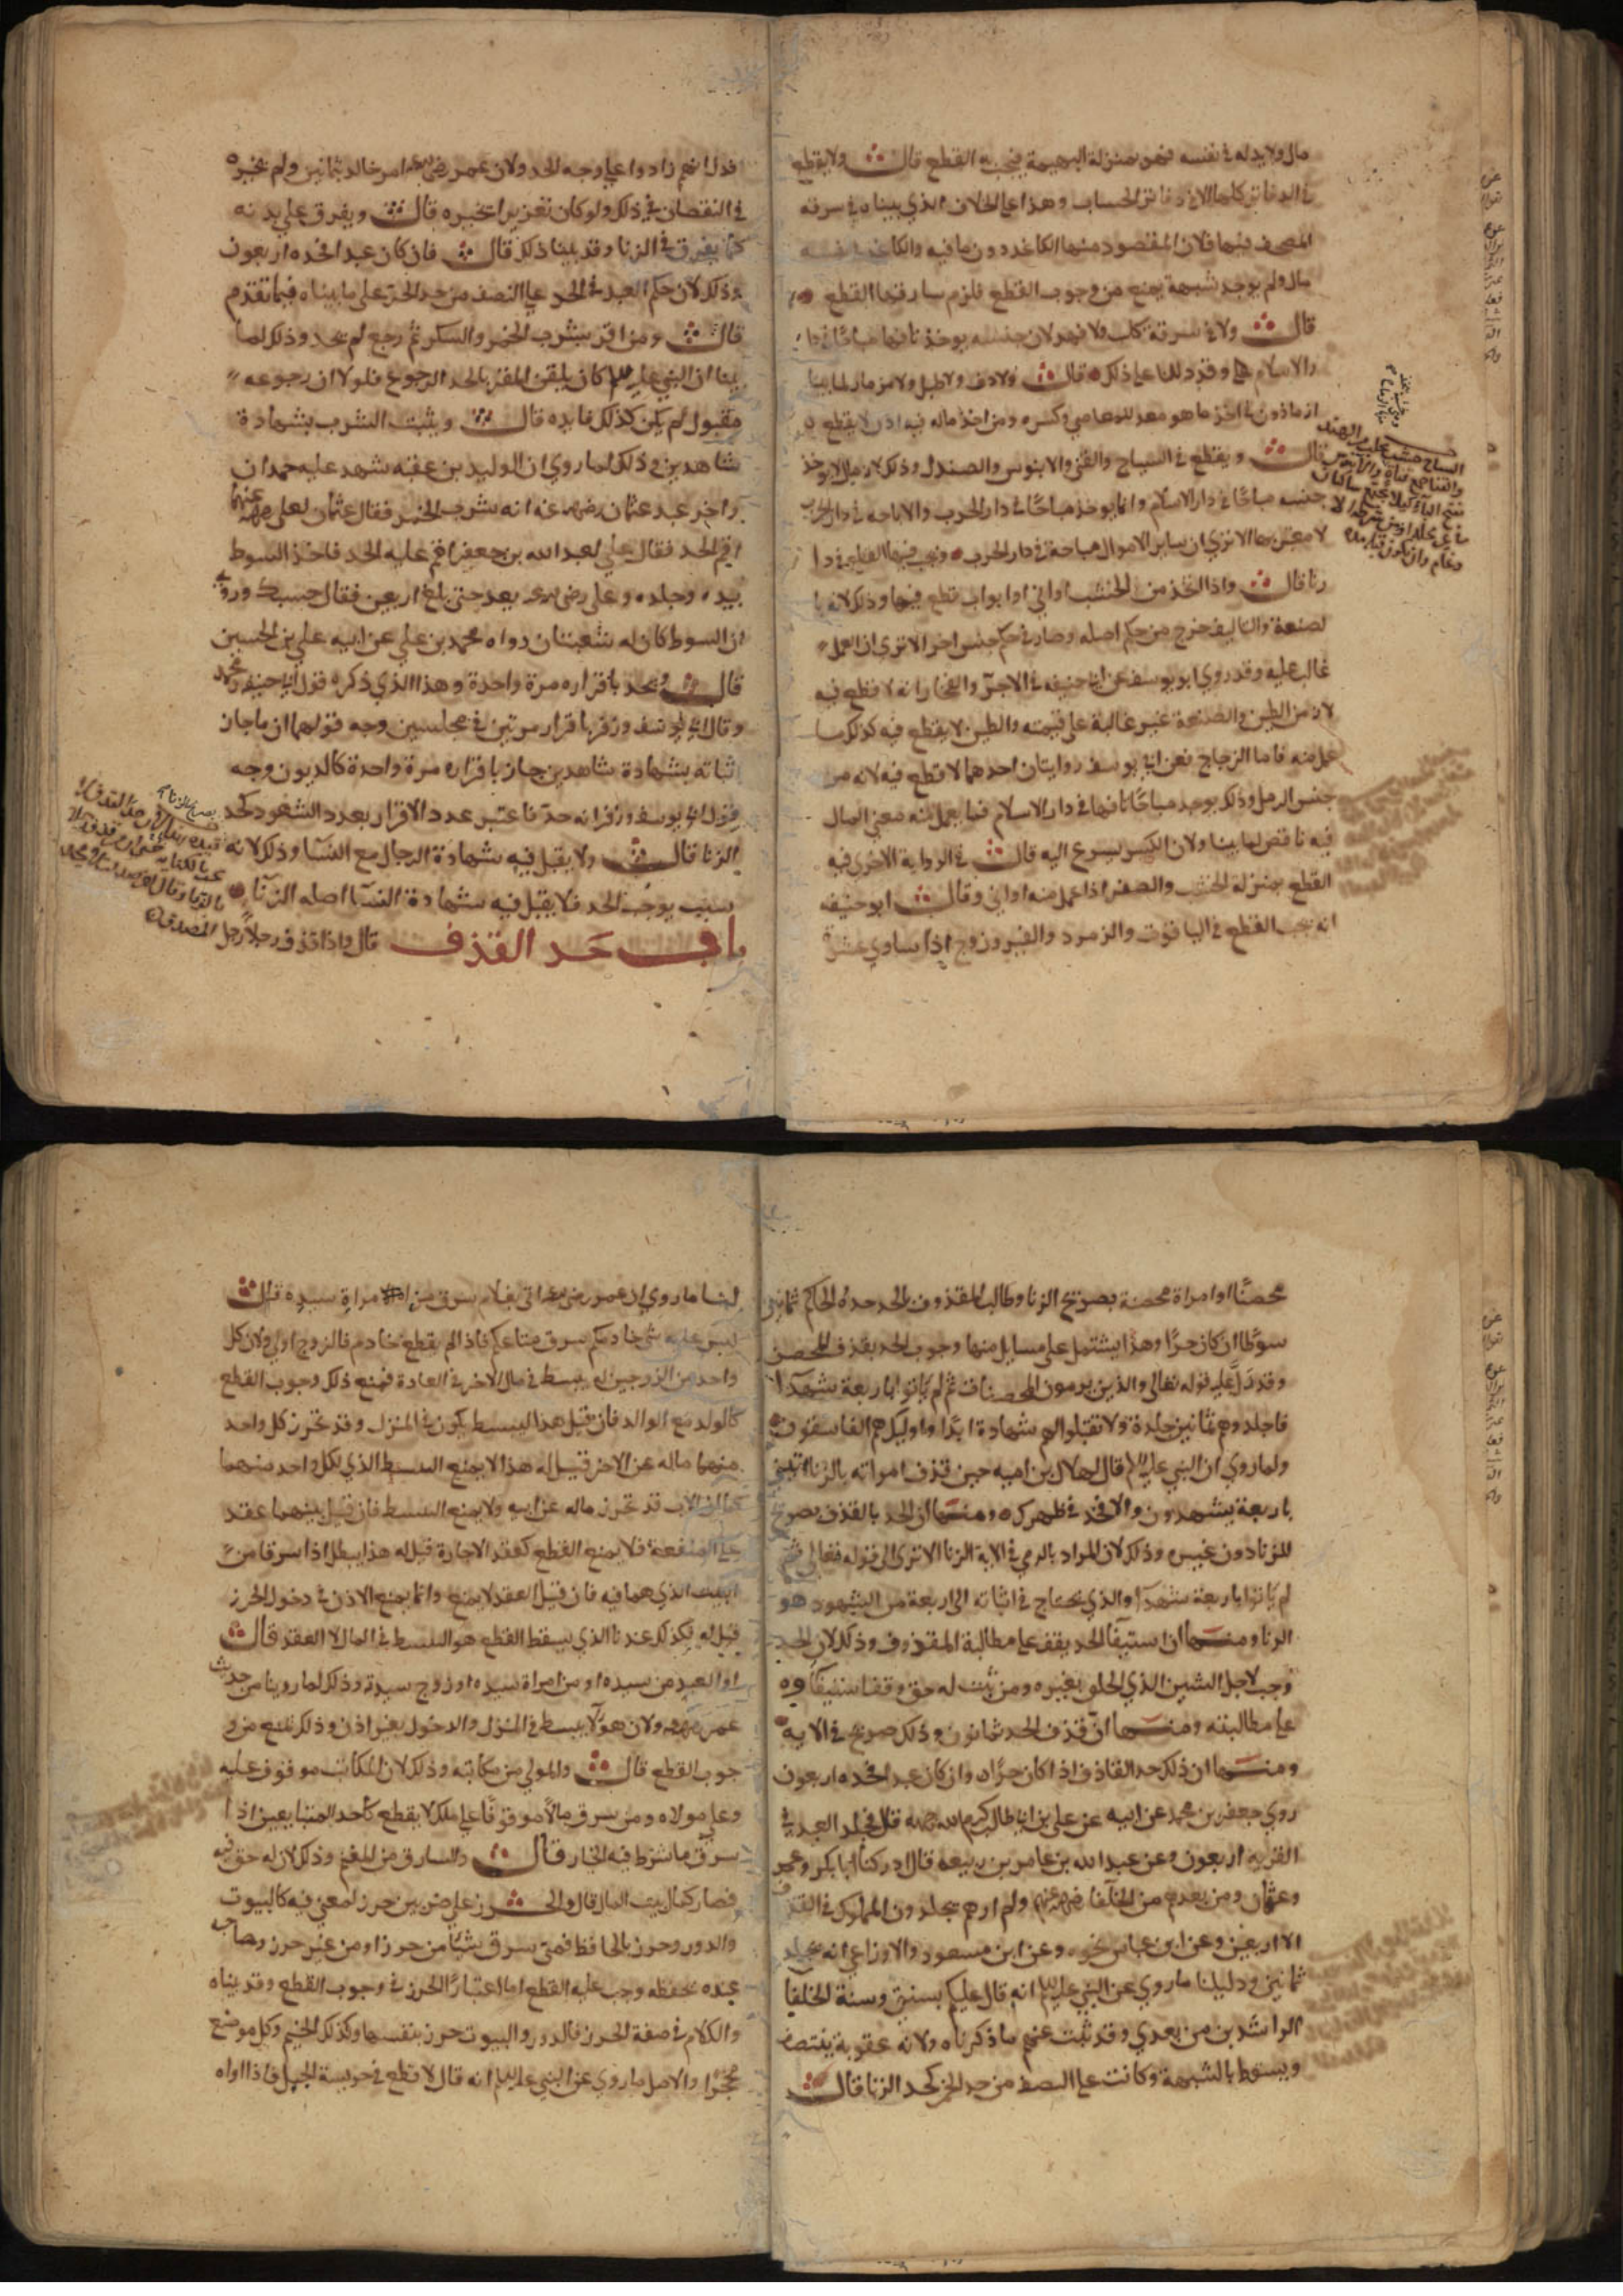 مال ولا يد له في نفسه فهو بمنزلة البهيمة فيجب به القطع قال ولا يقطع
في الدفاتر كلها الا في دفاتر الحساب وهذا على الخلاف الذي بيناه في سرقة
المصحف فلان المقصود منها الكاغد دون ما فيه والكاغد في نفسه
مال ولم يوجد شبهة يمنع من وجوب القطع فلزم سارقها القطع
قال ولا في سرقة كلب ولا فهد لان جنسه يوجد تافها مباحا في دا
ر الاسلام وقد دللنا على ذلك قال ولا دف ولا طبل ولا مزمار لما بينا
ان ماذون في اخذ ما هو معد للمعاصي وكسره ومن اخذ ماله فيه اذن لا يقطع
قال ويقطع في الساج والقنى والابنوس والصندل وذلك لانه لا يوجد
جنسه مباحا في دار الاسلام وانما يوجد مباحا في دار الحرب والاباحة في دار الحرب
لا معتبر بها الا ترى ان ساير الاموال مباحة في دار الحرب ويجب فيها القطع في دا
رنا قال واذا اتخذ من الخشب اواني او ابواب قطع فيها وذلك لانه با
لصنعة والتاليف خرج من حكم اصله وصار في حكم جنس اخر الا ترى ان العمل
غالب عليه وقد روى ابو يوسف عن ابي حنيفة في الاجر والفخار انه لا قطع فيه
لانه من الطين والصنعة غير غالبة على قيمته والطين لا يقطع فيه كذلك ما
عمل منه فاما الزجاج فعن ابي يوسف روايتان احدهما لا قطع فيه لانه من
جنس الرمل وذلك يوجد مباحا تافها في دار الاسلام فما يعمل منه معنى المال
فيه ناقص لما بينا ولان الكسر يسرع اليه قال في الرواية الاخرى فيه
القطع بمنزلة الخشب والصفر اذا عمل منه اواني وقال ابو حنيفه
انه يجب القطع في الياقوت والزمرد والفيروزج اذا ساوى عشرة
فدل انهم زادوا على وجه الحد ولان عمر رضي الله عنه امر خالد بثمانين ولم يخيره
في النقصان في ذلك ولو كان تعزيرا لخيره قال ويفرق على بدنه
كما يفرق في الزنا وقد بينا ذلك قال فان كان عبدا فحده اربعون
وذلك لان حكم العبد في الحد على النصف من حد الحر على ما بيناه فيما تقدم
قال ومن اقر بشرب الخمر والسكر ثم رجع لم يحد وذلك لما
بينا ان النبي عليه السلام كان يلقن المقر بالحد الرجوع فلولا ان رجوعه
مقبول لم يكن كذلك فايده قال ويثبت الشرب بشهادة
شاهدين وذلك لما روي ان الوليد بن عقبه شهد عليه حمدان
واخر عند عثمان رضي الله عنه انه شرب الخمر فقال عثمان لعلي رضي الله عنهما
اقم الحد فقال علي لعبد الله بن جعفر اقم عليه الحد فاخذ السوط
بيده وجلده وعلي رضي الله عنه يعد حتى بلغ اربعين فقال حسبك وروي
ان السوط كان له شعبتان رواه محمد بن علي عن ابيه علي بن الحسين
قال ويحد باقراره مرة واحدة وهذا الذي ذكره قول ابي حنيفه ومحمد
وقال ابو يوسف وزفر باقرار مرتين في مجلسين وجه قولهما ان ما جاز
ثباته بشهادة شاهدين جاز باقراره مرة واحدة كالديون وجه
قول ابي يوسف وزفر انه حد فاعتبر عدد الاقرار بعدد الشهود كحد
الزنا قال ولا يقبل فيه شهادة الرجال مع النسا وذلك لانه
سبب يوجب الحد فلا يقبل فيه شهادة النسا اصله الزنا
باب حد القذف قال واذا قذف رجلا رجل
محصنا او امراة محصنة بصريح الزنا وطالب المقذوف بالحد حده الحاكم ثمانين
سوطا ان كان حرا وهذا يشتمل على مسايل منها وجوب الحد بقذف المحصن
وقد دل عليه قوله تعالى والذين يرمون المحصنات ثم لم ياتوا باربعة شهدا
فاجلدوهم ثمانين جلدة ولا تقبلوا لهم شهادة ابدا واوليك هم الفاسقون
ولما روي ان النبي عليه السلام قال لهلال بن اميه حين قذف امراته بالزنا ائتني
باربعة يشهدون والا فحد في ظهرك ومنها ان الحد بالقذف بصريح
للزنا دون غيره وذلك لان المراد بالرمي في الاية الزنا الا ترى الى قوله تعالى ثم
لم ياتوا باربعة شهدا والذي يحتاج في اثباته الى اربعة من الشهود هو
الزنا ومنها ان استيفا الحد يقف على مطالبة المقذوف وذلك لان الحد
وجب لاجل الشين الذي الحاق بغيره ومن ثبت له حق وقف استيفاؤه
على مطالبته ومنها ان قذف الحد ثمانون وذلك صريح في الايه
ومنها ان ذلك حد القاذف اذا كان حرا وان كان عبدا فحده اربعون
روى جعفر بن محمد عن ابيه عن علي بن ابي طالب كرم الله وجهه قال يجلد العبد في
الفرية اربعون وعن عبد الله بن عامر بن ربيعة قال ادركت ابا بكر وعمر
وعثمان ومن بعدهم من الخلفا رضي الله عنهم ولم ارهم يجلدون المملوك في القذف
الا اربعين وعن ابن عباس نحوه وعن ابن مسعود والاوزاعي انه يجلد
ثمانين ودليلنا ما روي عن النبي عليه السلام انه قال عليكم بسنتي وسنة الخلفا
الراشدين من بعدي وقد ثبت عنهم ما ذكرناه ولانه عقوبة ينتصف
ويسقط بالشبهة وكانت على النصف من حد الحر كحد الزنا قال
لنا ما روي ان عمر رضي الله عنه اتى بغلام سرق مراة امراة سيده قال
ليس عليه شي خادمكم سرق متاعكم فاذا لم يقطع خادم فالزوج اولى ولان كل
واحد من الزوجين له يبسط في مال الاخر في العادة فمنع ذلك وجوب القطع
كالولد مع الوالد فان قيل هذا البسط يكون في المنزل وقد تحرز كل واحد
منهما ماله عن الاخر قيل له هذا لا يمنع البسط الذي لكل واحد منهما
كما ان الاب قد تحرز ماله عن ابيه ولا يمنع البسط فان قيل بينهما عقد
على المنفعة فلا يمنع القطع كعقد الاجارة قيل له هذا يبطل اذا سرق من
البيت الذي هما فيه فان قيل العقد لا يمنع وانما يمنع الاذن في دخول الحرز
قيل له فكذلك عندنا الذي يسقط القطع هو البسط في المال لا العقد قال
او العبد من سيده او من امراة سيده او زوج سيدته وذلك لما روينا من حديث
عمر رضي الله عنه ولان هولا يبسط في المنزل والدخول بغير اذن وذلك يمنع من و
جوب القطع قال والمولى من مكاتبه وذلك لان المكاتب موقوف عليه
وعلى مولاه ومن سرق مالا موقوفا على ملك لا يقطع كاحد المتبايعين اذا
سرق ما شرط فيه الخيار قال والسارق من المغنم وذلك لان له حق فيه
فصار كمال بيت المال قال والحرز على ضربين حرز لمعنى فيه كالبيوت
والدور وحرز بالحافظ فمتى سرق شيا من حرز او من غير حرز وصاحبه
عنده يحفظه وجب عليه القطع اما اعتبار الحرز في وجوب القطع وقد بيناه
والكلام في صفة الحرز فالدور والبيوت حرز بنفسها وكذلك الخيم وكل موضع
محجرا والاصل ما روي عن النبي عليه السلام انه قال لا قطع في حريسة الجبل فاذا اواه